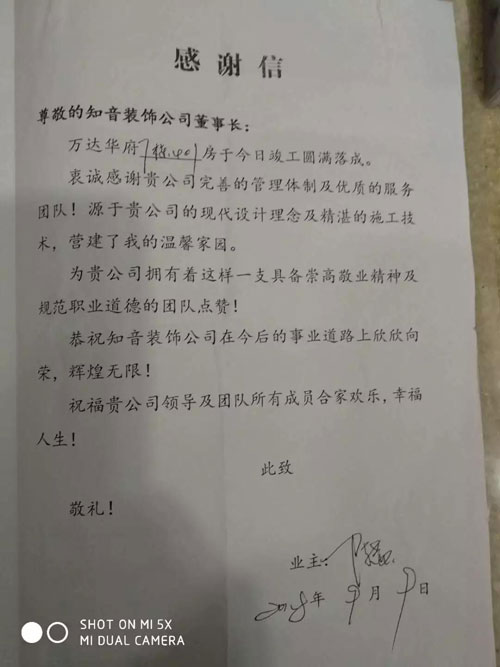 感谢信
尊敬的知音装饰公司董事长：
万达华府 房于今日竣工圆满落成。
衷诚感谢贵公司完善的管理体制及优质的服务
团队！源于贵公司的现代设计理念及精湛的施工技
术，营建了我的温馨家园。
为贵公司拥有着这样一支具备崇高敬业精神及
规范职业道德的团队点赞！
恭祝知音装饰公司在今后的事业道路上欣欣向
荣，辉煌无限！
祝福贵公司领导及团队所有成员合家欢乐，幸福
人生！
此致
敬礼！
业主：
2018年 9月 9日
SHOT ON MI 5X
MI DUAL CAMERA